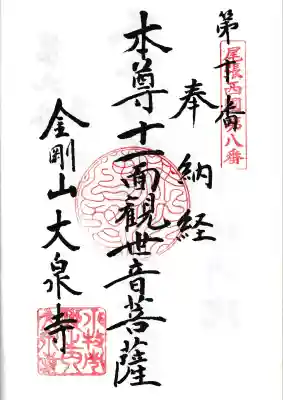 尾張西国第八番
第番
奉納経
本尊十一面観世音菩薩
金剛山大泉寺